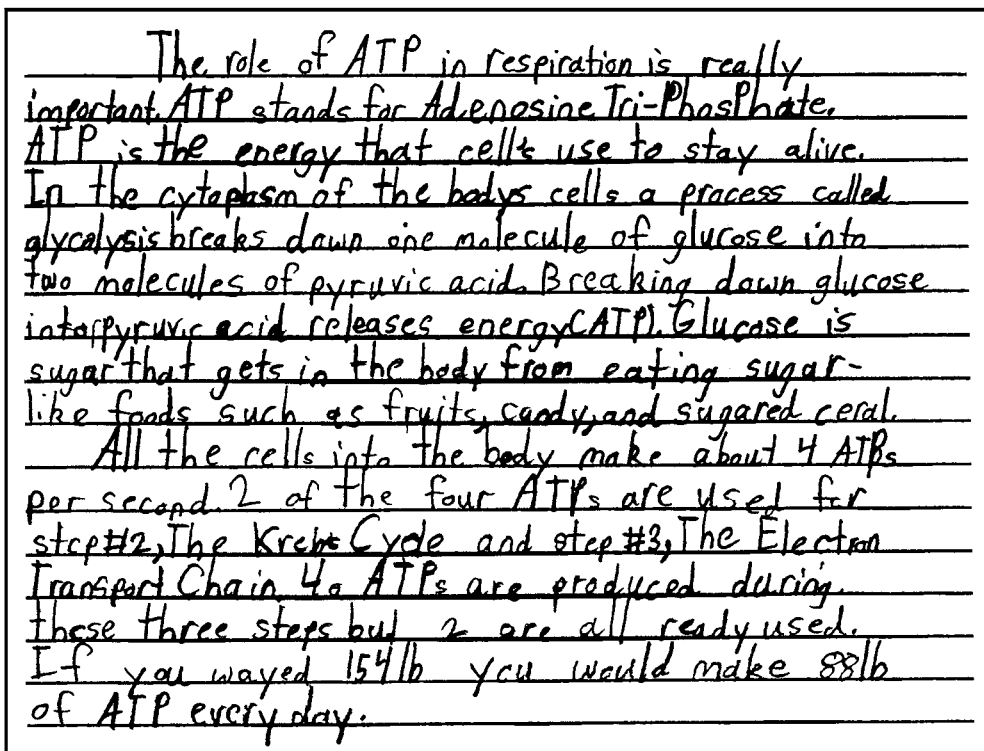 The role of ATP in respiration is really
important. ATP stands for Adenosine Tri-Phosphate.
ATP is the energy that cells use to stay alive.
In the cytoplasm of the bodys cells a process called
glycolysis breaks down one molecule of glucose into
two molecules of pyruvic acid. Breaking down glucose
into pyruvic acid releases energy(ATP). Glucose is
sugar that gets in the body from eating sugar-
like foods such as fruits, candy, and sugared ceral.
All the cells into the body make about 4 ATPs
per second. 2 of the four ATPs are used for
step#2, The Krebs Cycle and step #3, The Electron
Transport Chain. 40 ATPs are produced during
these three steps but 2 are all ready used.
If you wayed 154lb you would make 88lb
of ATP every day.